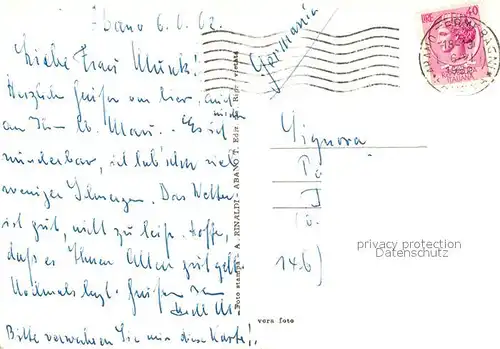 Abano 6.6.62.
Liebe Frau Munk!
Herzliche Grüße von hier, auch
an Ihren lb. Mann. Es ist wieder
wunderbar, ich hab' schon viel
weniger Schmerzen. Das Wetter
ist gut, nicht zu heiß. Hoffe,
daß es Ihnen Allen gut geht.
Nochmals hzl. Grüße von
Bitte verwahren Sie mir diese Karte!
Foto stampa - A. RINALDI - ABANO T. Edit. da Rotc. vietata
vera foto
Germania
LIRE 40
ITALIANE
Signora
14b)
privacy protection
Datenschutz